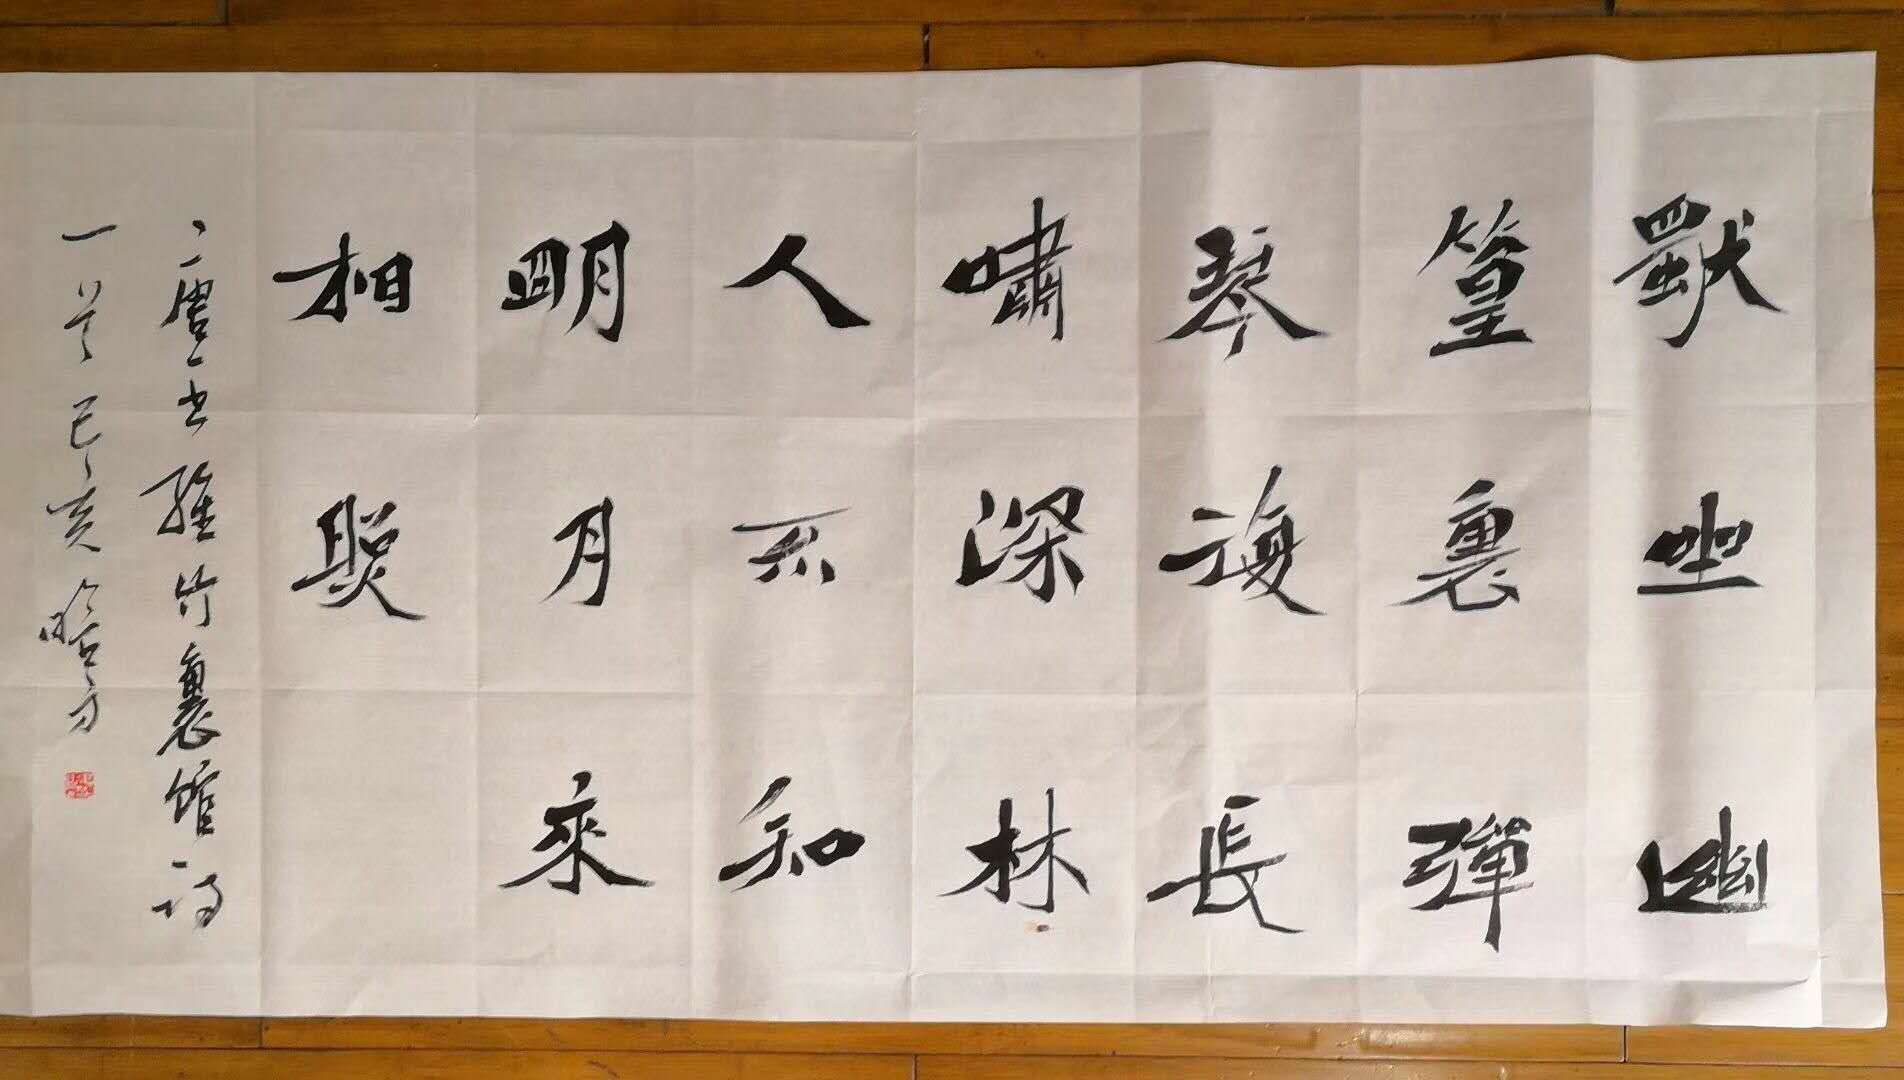 獨坐幽
篁裏彈
琴復長
嘯深林
人不知
明月來
相照
唐王維竹裏館詩
一首己亥